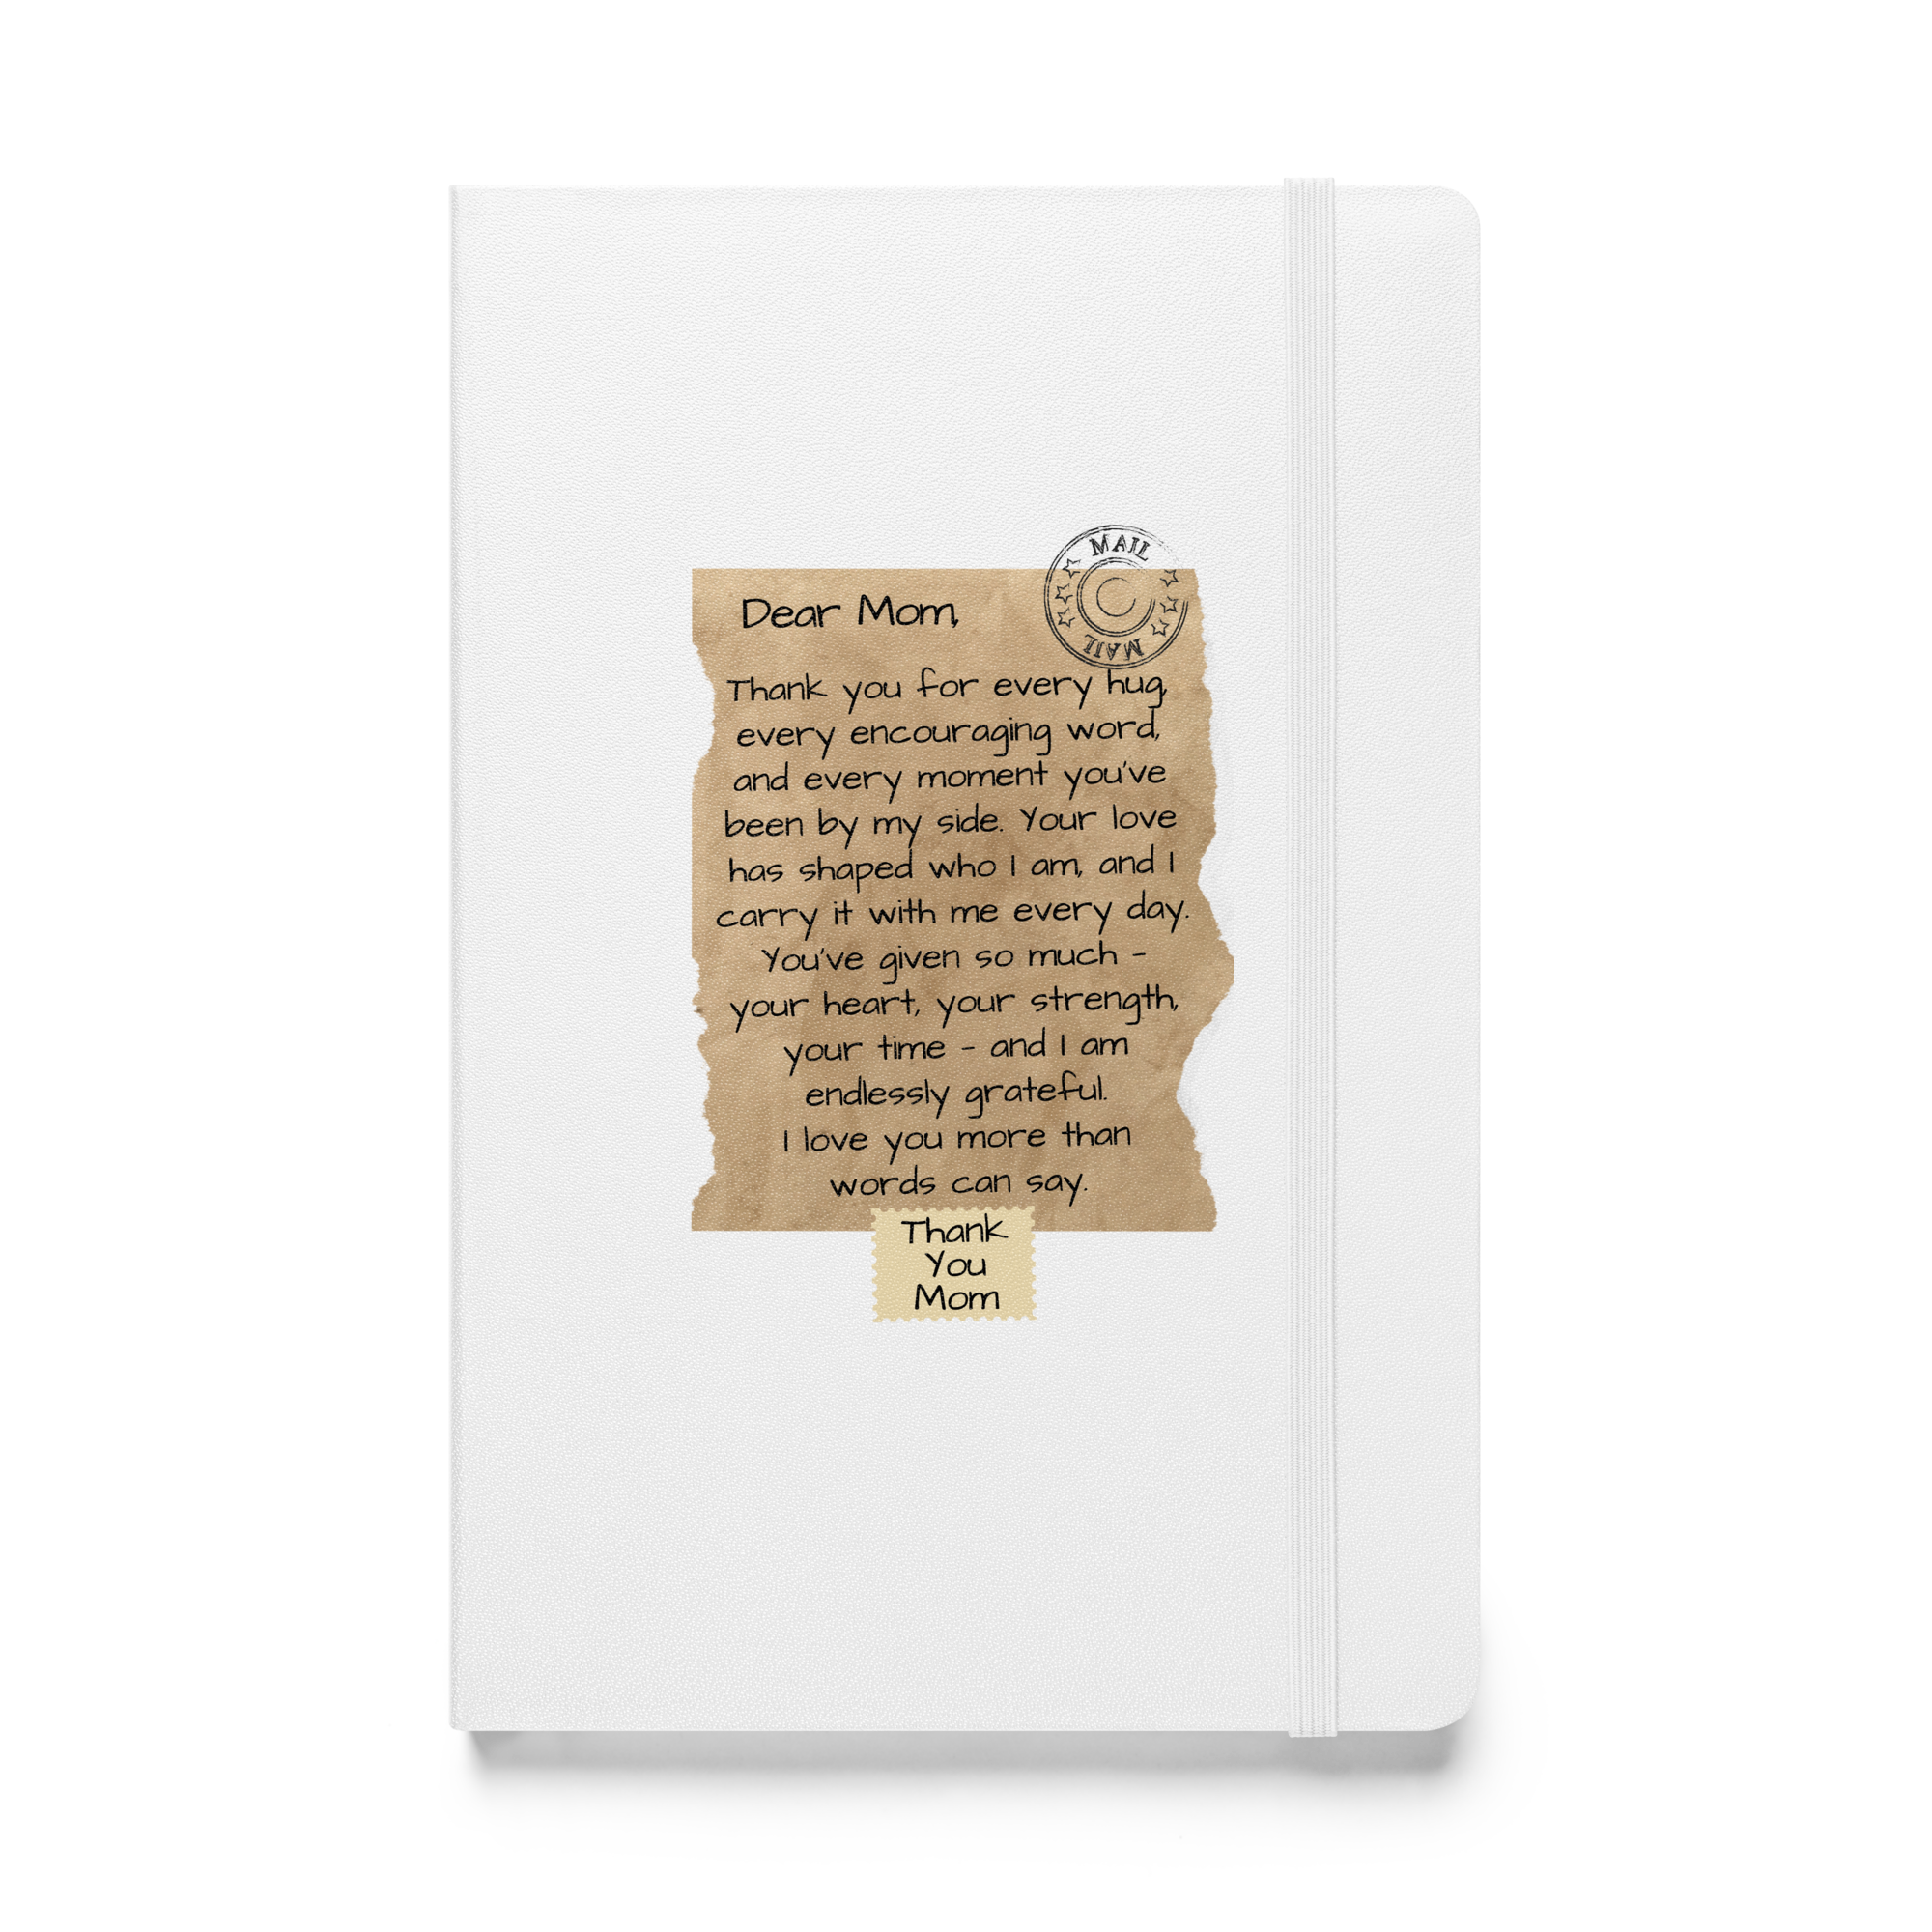 MAIL
MAIL
Dear Mom,
Thank you for every hug,
every encouraging word,
and every moment you've
been by my side. Your love
has shaped who I am, and I
carry it with me every day.
You've given so much -
your heart, your strength,
your time - and I am
endlessly grateful.
I love you more than
words can say.
Thank
You
Mom